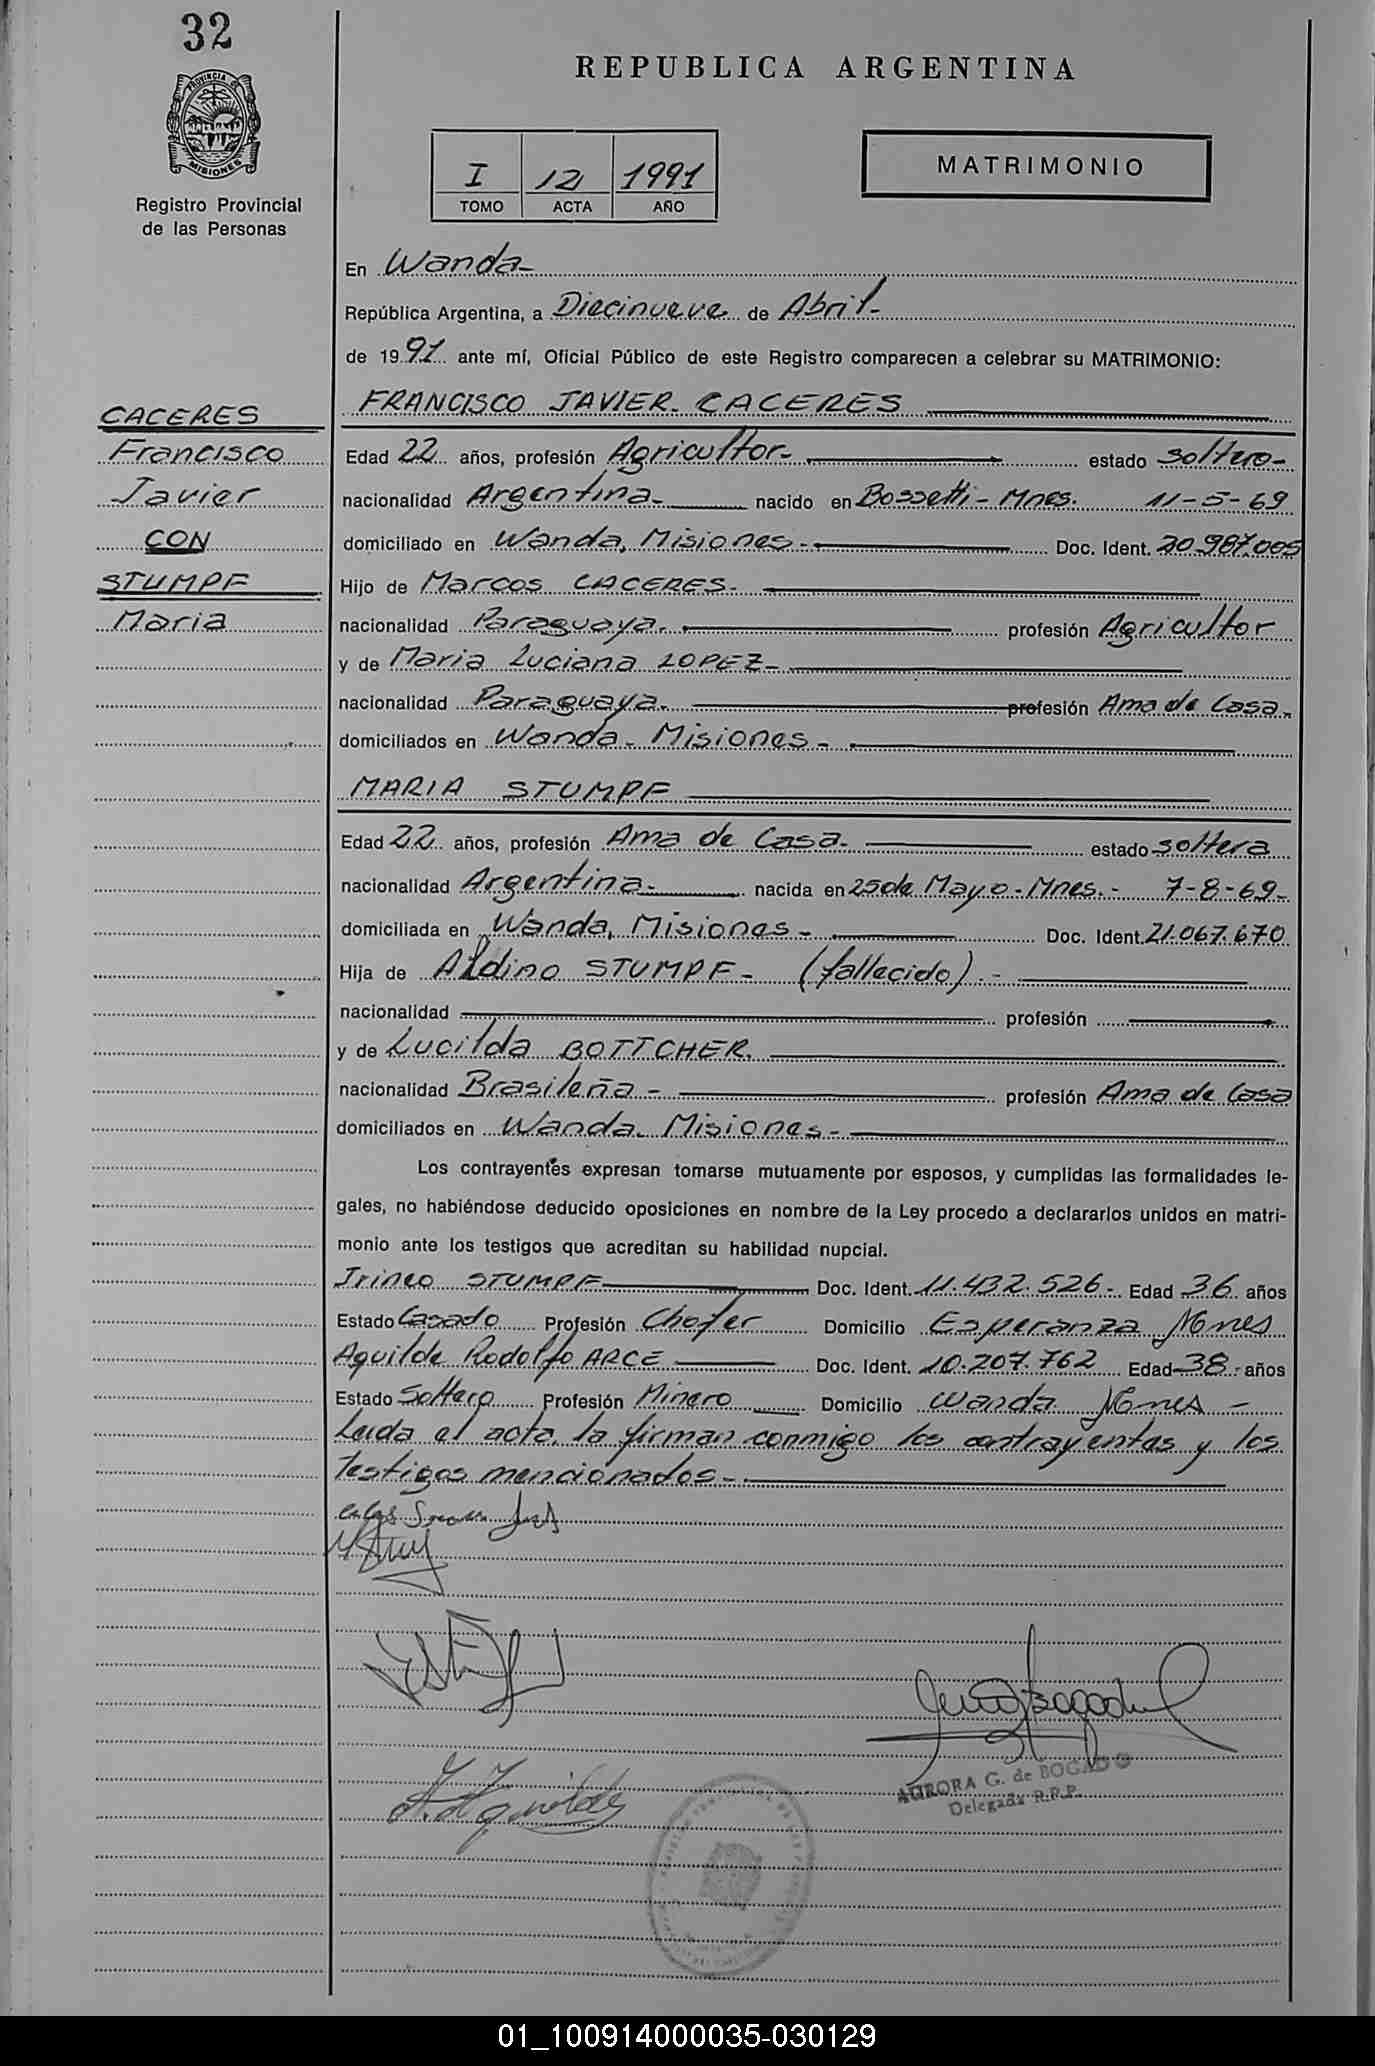 32
PROVINCIA
MISIONES
Registro Provincial
de las Personas
REPUBLICA ARGENTINA
I 12 1991
TOMO ACTA AÑO
MATRIMONIO
En Wanda-
República Argentina, a Diecinueve de Abril-
de 1991 ante mí, Oficial Público de este Registro comparecen a celebrar su MATRIMONIO:
CACERES
Francisco
Javier
CON
STUMPF
Maria
FRANCISCO JAVIER CACERES
Edad 22 años, profesión Agricultor- estado soltero-
nacionalidad Argentina- nacido en Bossetti-Mnes. 11-5-69
domiciliado en Wanda, Misiones- Doc. Ident. 20.987.005
Hijo de Marcos CACERES-
nacionalidad Paraguaya- profesión Agricultor
y de Maria Luciana LOPEZ-
nacionalidad Paraguaya- profesión Ama de Casa-
domiciliados en Wanda- Misiones-
MARIA STUMPF
Edad 22 años, profesión Ama de Casa- estado soltera
nacionalidad Argentina- nacida en 25 de Mayo-Mnes.- 7-8-69-
domiciliada en Wanda, Misiones- Doc. Ident. 21.067.670
Hija de Aldino STUMPF- (fallecido).-
nacionalidad profesión
y de Lucilda BOTTCHER.
nacionalidad Brasileña- profesión Ama de Casa
domiciliados en Wanda. Misiones-
Los contrayentes expresan tomarse mutuamente por esposos, y cumplidas las formalidades le-
gales, no habiéndose deducido oposiciones en nombre de la Ley procedo a declararlos unidos en matri-
monio ante los testigos que acreditan su habilidad nupcial.
Irineo STUMPF Doc. Ident. 11.432.526- Edad 36 años
Estado Casado Profesión Chofer Domicilio Esperanza Mnes
Aquilde Rodolfo ARCE Doc. Ident. 10.207.762 Edad 38- años
Estado Soltero Profesión Minero Domicilio Wanda Mnes-
Leida el acta, la firman conmigo los contrayentes y los
testigos mencionados-
AURORA G. de BOGADO
Delegada R.P.P.
01_100914000035-030129